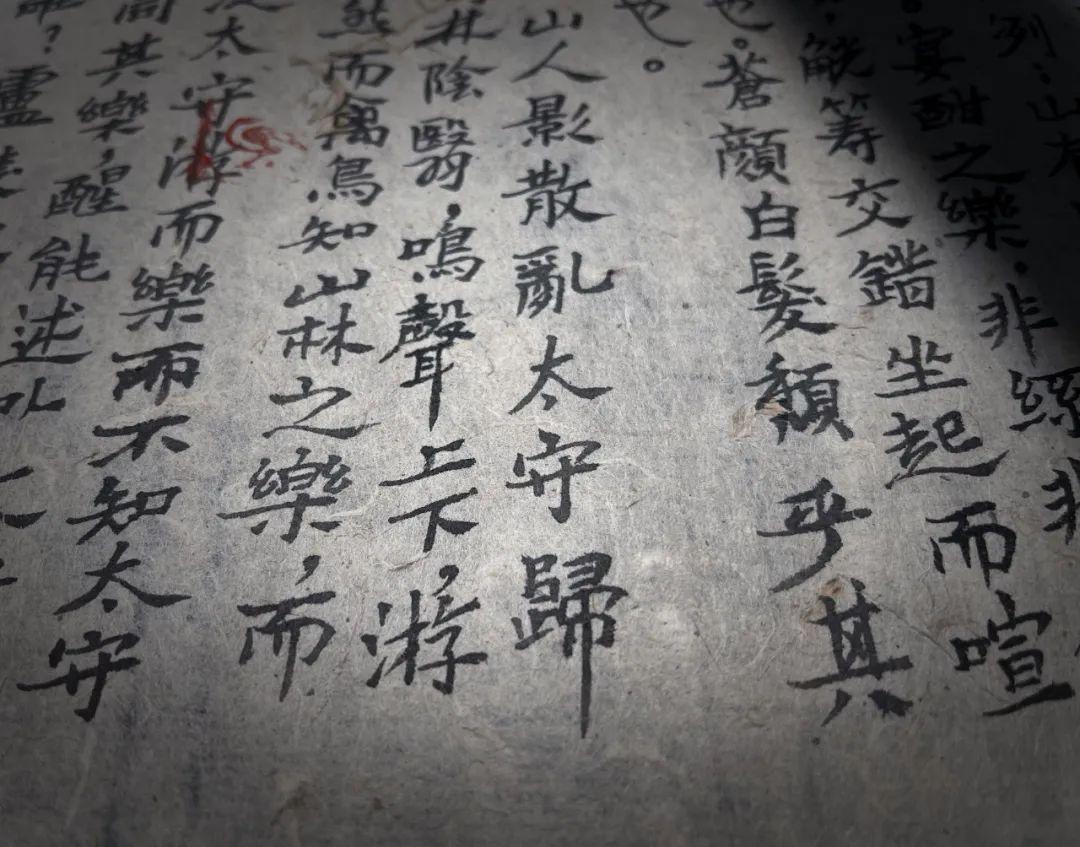 列：山
。宴酣之樂，非絲非
，觥籌交錯坐起而喧
也。蒼顏白髮頽乎其
也。
山人影散亂太守歸
林陰翳，鳴聲上下，游
然而禽鳥知山林之樂，而
太守游而樂而不知太守
同其樂，醒能述以
誰？廬陵